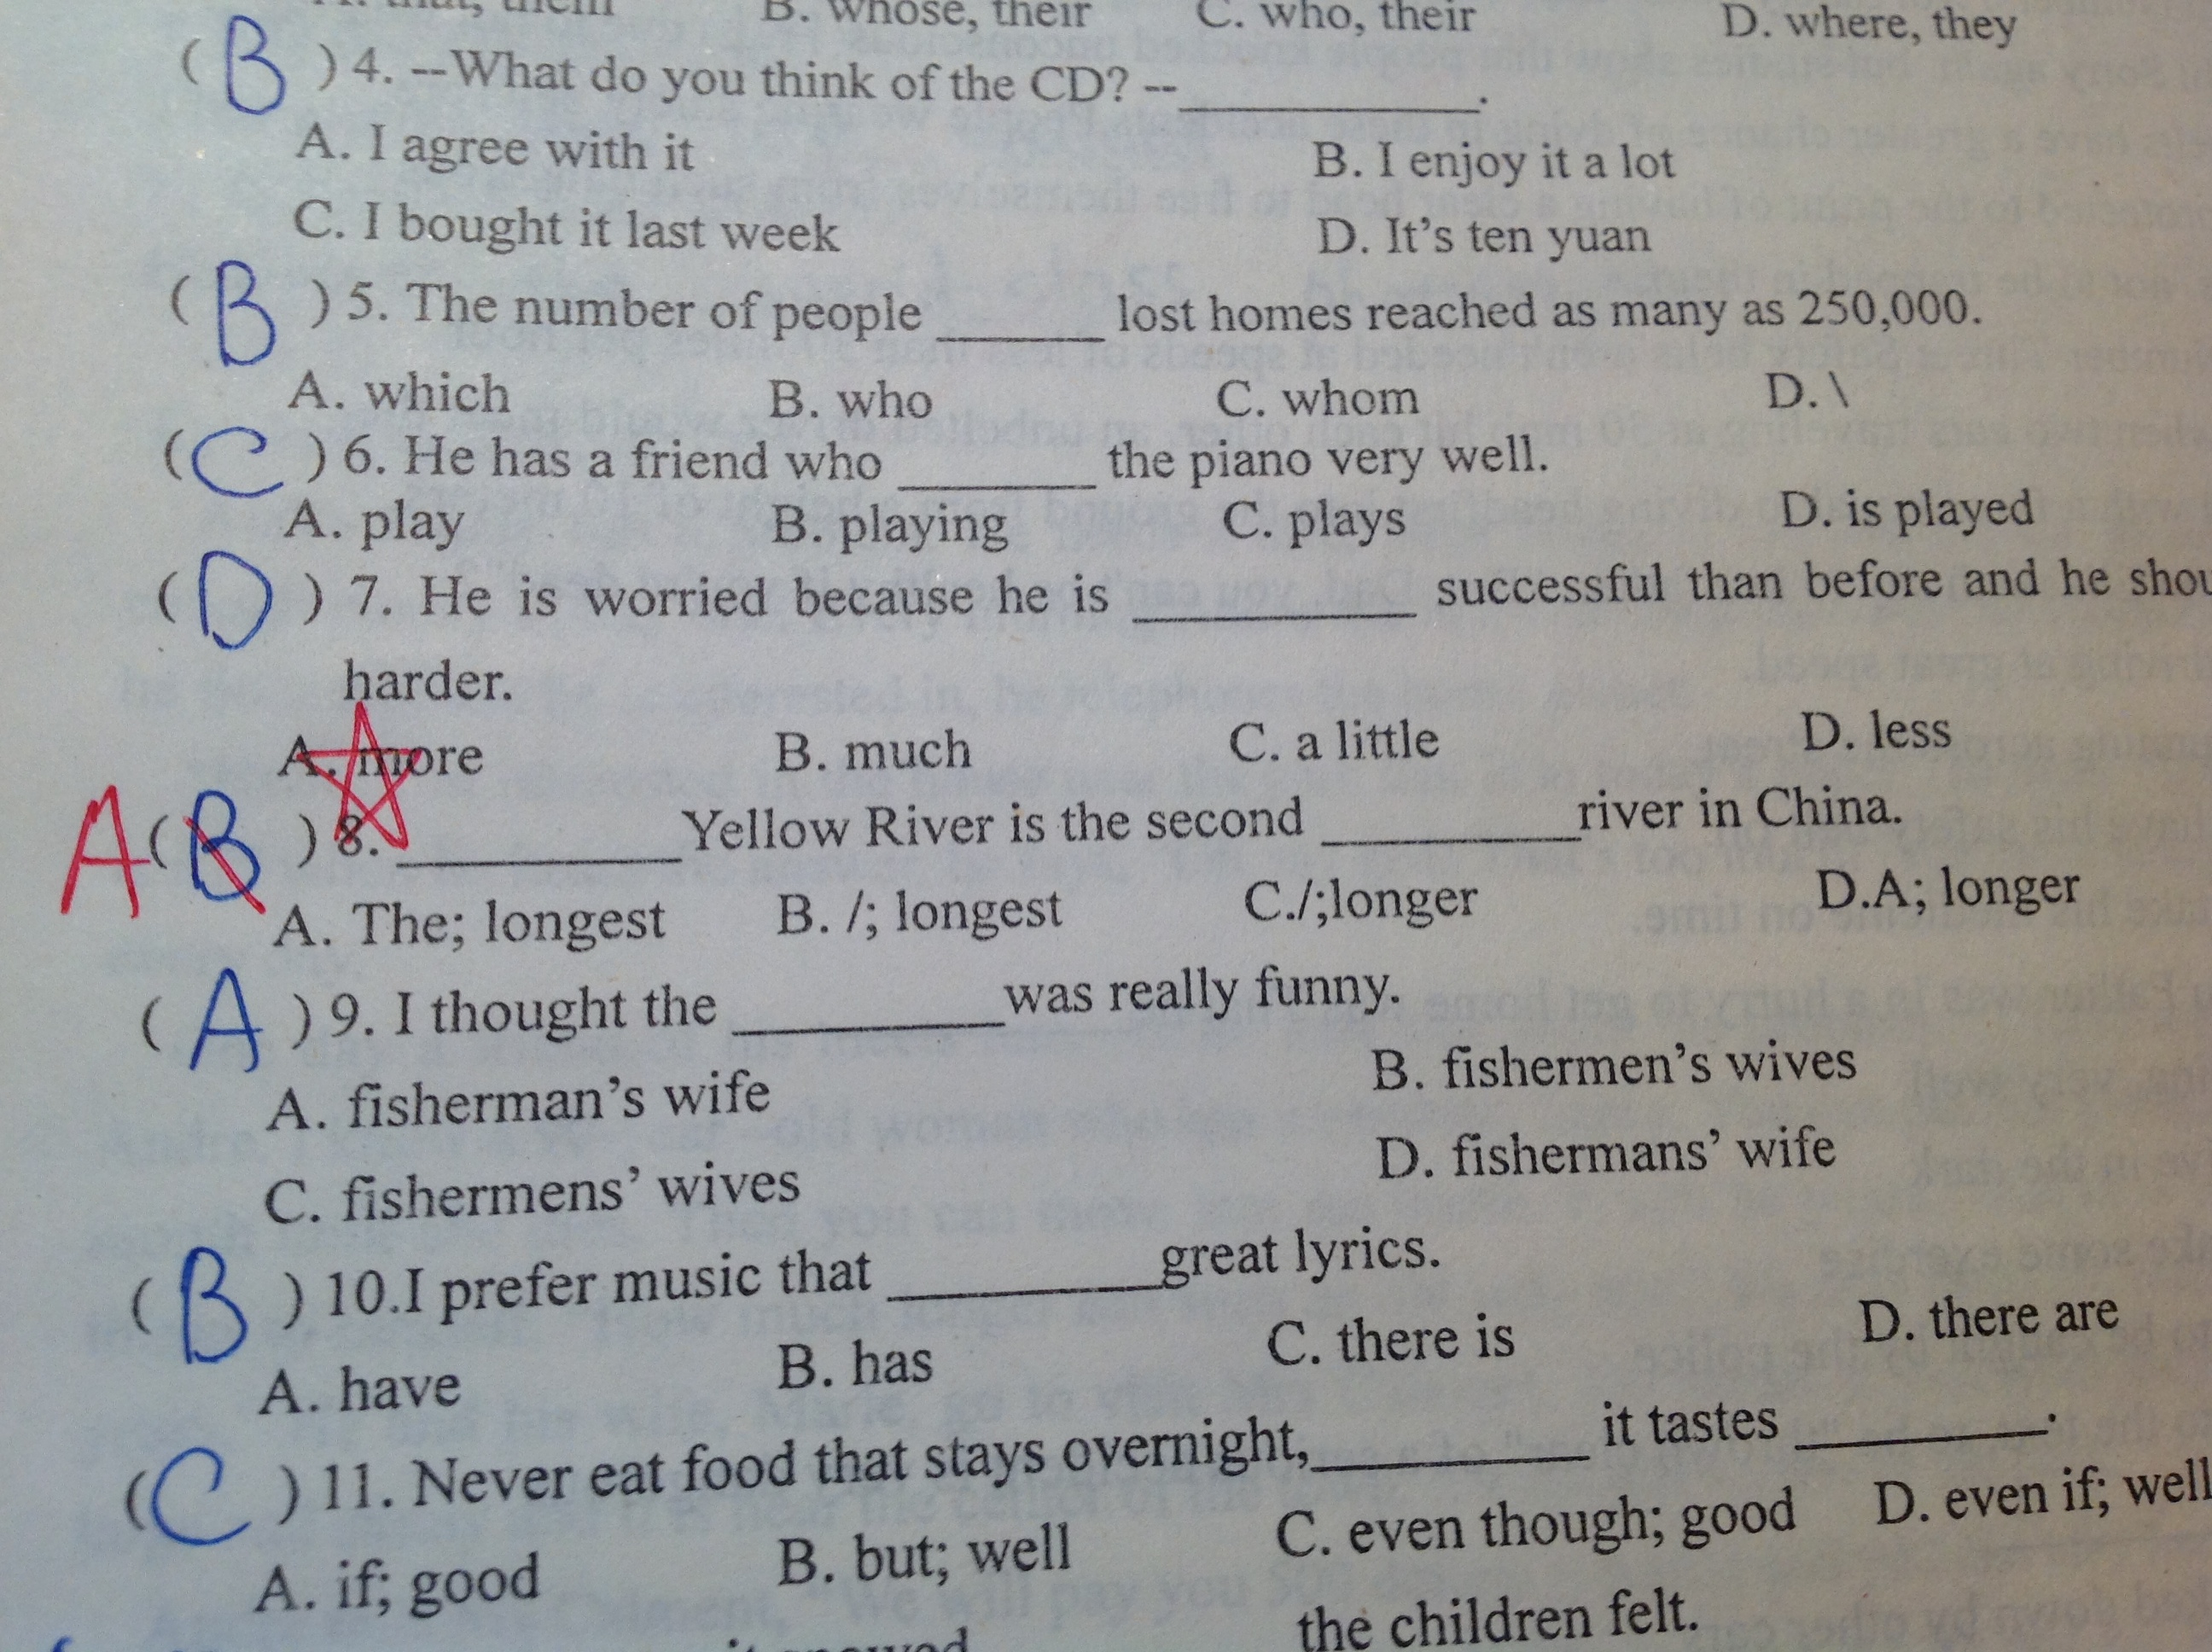 B. whose, their C. who, their D. where, they
( B ) 4. --What do you think of the CD? --____________.
A. I agree with it B. I enjoy it a lot
C. I bought it last week D. It's ten yuan
( B ) 5. The number of people _______ lost homes reached as many as 250,000.
A. which B. who C. whom D. \
( C ) 6. He has a friend who ________ the piano very well.
A. play B. playing C. plays D. is played
( D ) 7. He is worried because he is ___________ successful than before and he shou
harder.
A. more B. much C. a little D. less
A ( B ) 8. ___________ Yellow River is the second __________ river in China.
A. The; longest B. /; longest C./;longer D.A; longer
( A ) 9. I thought the ___________ was really funny.
A. fisherman's wife B. fishermen's wives
C. fishermens' wives D. fishermans' wife
( B ) 10.I prefer music that ___________ great lyrics.
A. have B. has C. there is D. there are
( C ) 11. Never eat food that stays overnight,___________ it tastes __________.
A. if; good B. but; well C. even though; good D. even if; well
the children felt.